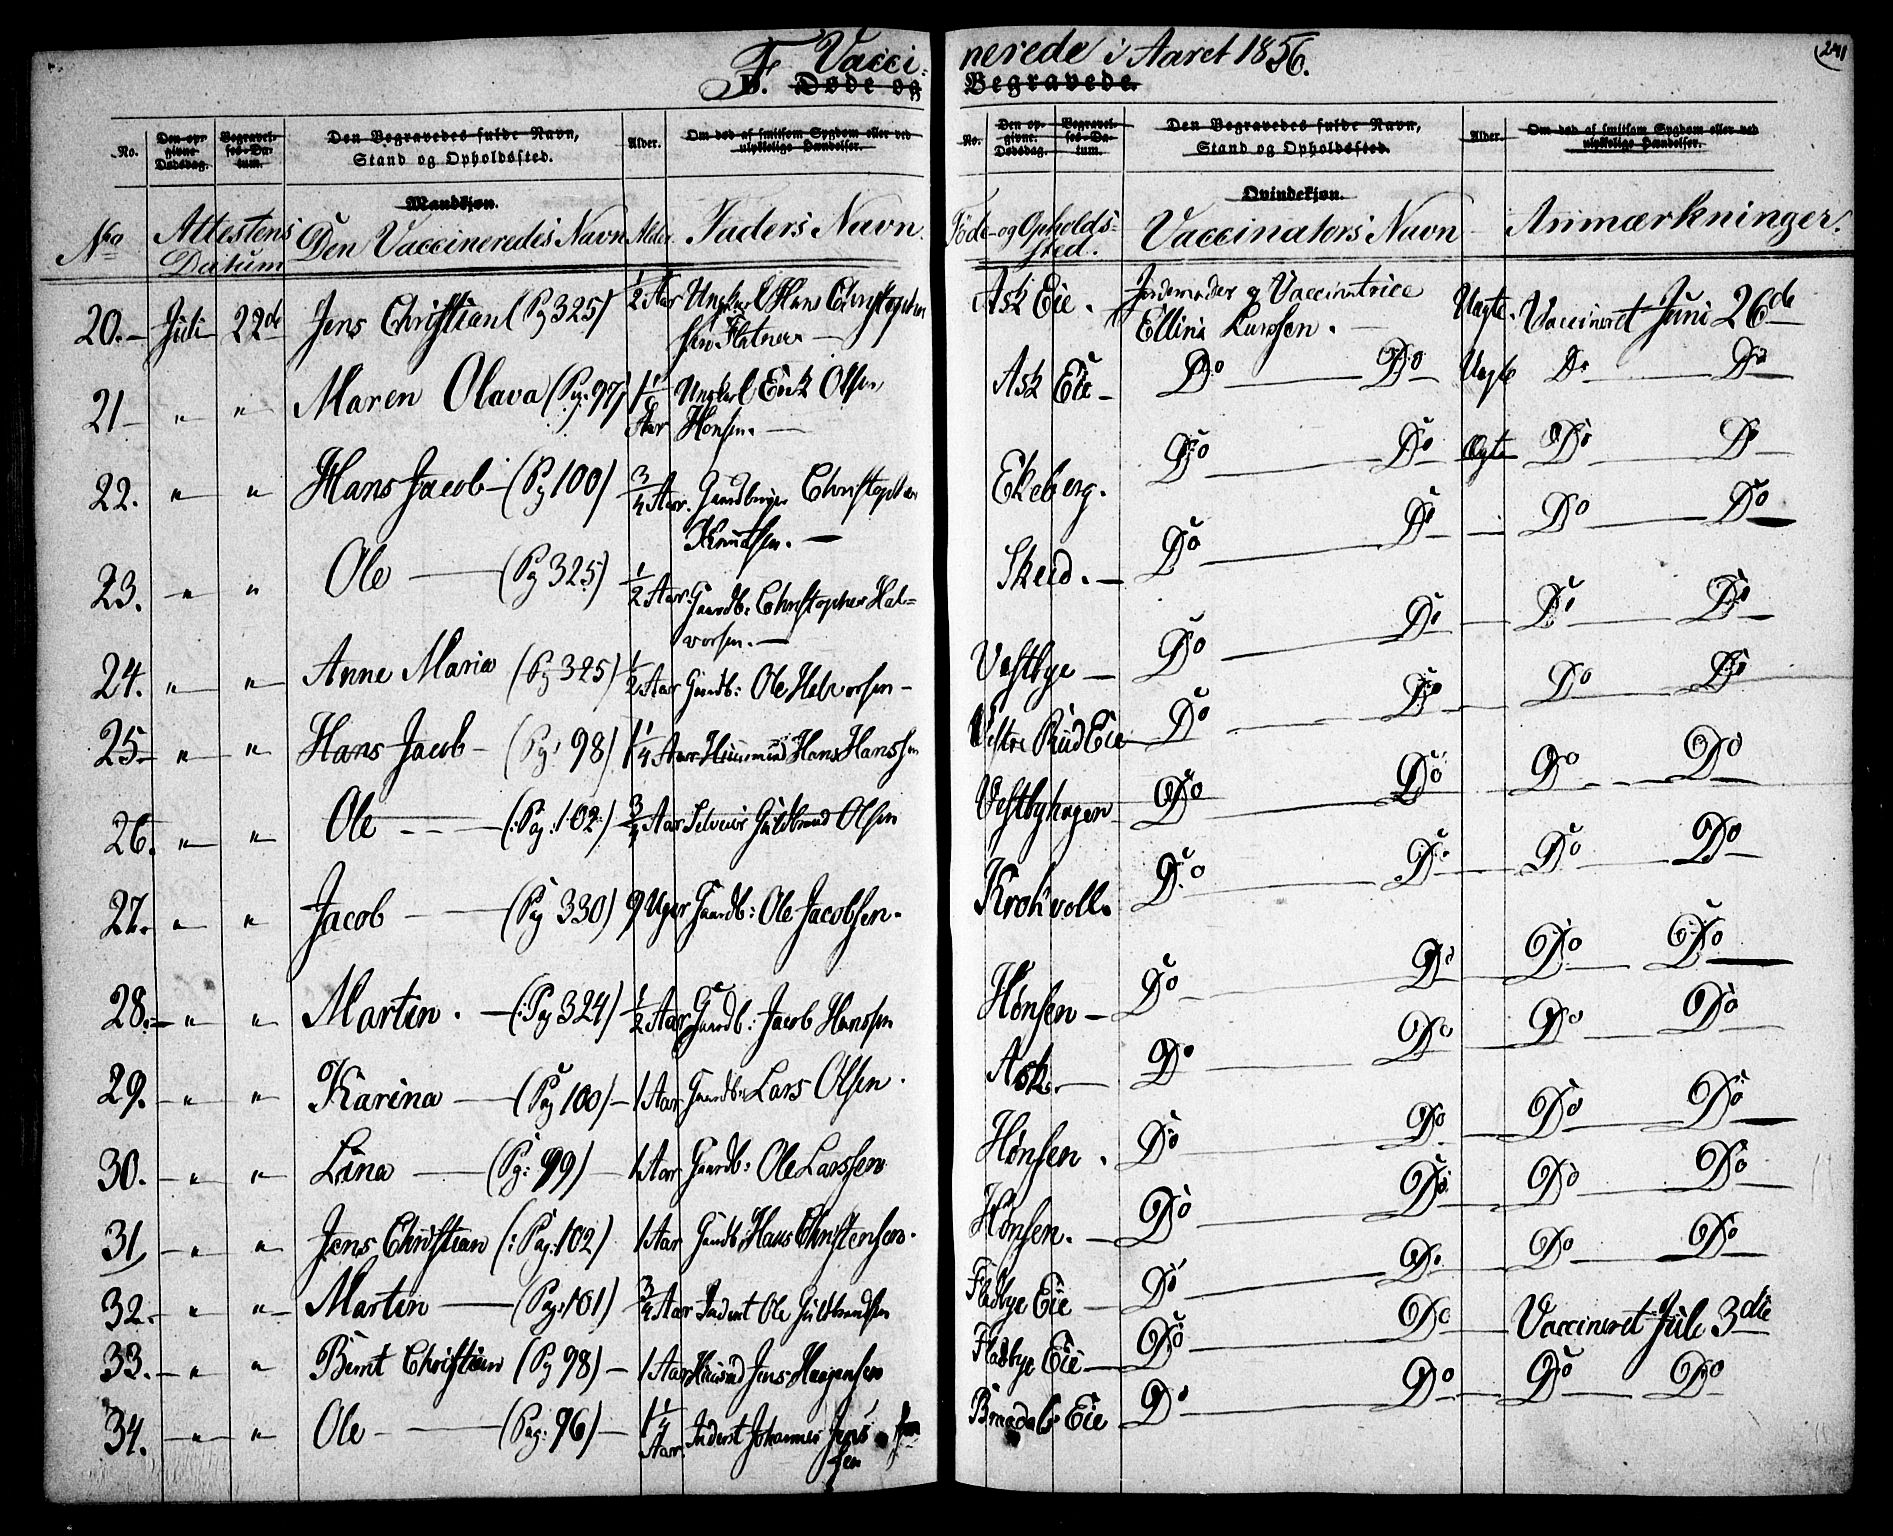 F. Vacci- nerede i Aaret 1856. 241
B. Døde og Begravede.
No. Den opgivne Dødsdag. Begravelses-Datum. Den Begravedes fulde Navn, Stand og Opholdssted. Alder. Om død af smitsom Sygdom eller ved ulykkelige Hændelser.
No. Den opgivne Dødsdag. Begravelses-Datum. Den Begravedes fulde Navn, Stand og Opholdssted. Alder. Om død af smitsom Sygdom eller ved ulykkelige Hændelser.
Mandkjøn. Qvindekjøn.
No Attestens Datum Den Vaccineredes Navn Alder. Faders Navn. Föde- og Opholds-sted. Vaccinators Navn Anmærkninger.
20. Juli 22de Jens Christian (Pg 325) 1/2 Aar Ungkarl Hans Christophersen Ask Eie. Jordemoder og Vaccinatrice Uægte. Vaccineret Juni 26de
Ellina Larssen.
21 " " Maren Olava (Pag. 97) 1 1/6 Aar Ungkarl Erik Olsen Hønsen. Ask Eie Do Do Uægte Do Do
22. " " Hans Jacob (Pg 100) 3/4 Aar. Gaardbruger Christopher Knudsen. Ekeberg. Do Do Ægte Do Do
23. " " Ole (Pg 325) 1/2 Aar. Gaardb: Christopher Halvorsen. Skeid. Do Do Do Do
24. " " Anne Maria (Pg 325) 1/2 Aar Gaardb: Ole Halvorsen Vestbye Do Do Do Do
25 " " Hans Jacob (Pg: 98) 1 1/4 Aar Huusmand Hans Hanssen Vestre Rud Eie Do Do Do Do
26. " " Ole (: Pag: 102) 3/4 Aar Selveier Guldbrand Olsen Vestbyhagen Do Do Do Do
27. " " Jacob (Pg 330) 9 Uger Gaardb: Ole Jacobsen. Krohkvoll. Do Do Do Do
28. " " Martin. (: Pag 324) 1/2 Aar Gaardb: Jacob Hanssen Hønsen Do Do Do Do
29. " " Karina (Pag 100) 1 Aar Gaardb: Lars Olsen. Ask. Do Do Do Do
30. " " Lina (Pg: 99) 1 Aar Gaardb: Ole Larssen Hønsen. Do Do Do Do
31 " " Jens Christian (: Pag: 102) 1 Aar Gaardb: Hans Christensen. Hønsen. Do Do Do Do
32. " " Martin (Pag: 101) 3/4 Aar Inderst Ole Guldbrandsen Fladbye Eie Do Do Do Do
33. " " Bernt Christian (Pg 98) 1 Aar Huusmd Jens Haagensen Fladbye Eie Do Do Vaccineret Juli 3die
34. " " Ole (Pag: 96) 1 1/4 Aar. Inderst Johannes Jenssen Eie Do Do Do Do